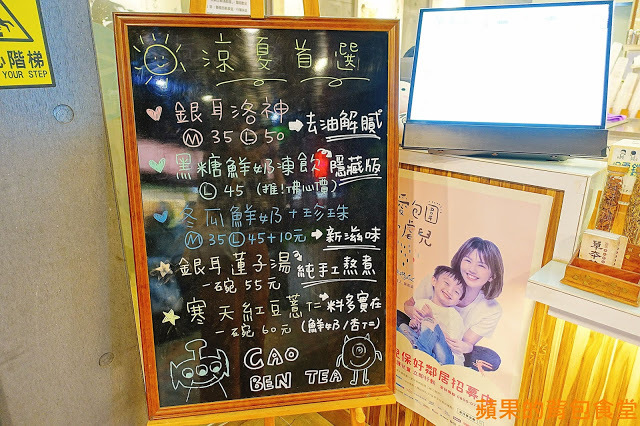 心階梯
YOUR STEP
涼夏首選
銀耳洛神
Ⓜ 35 Ⓛ 50 → 去油解膩
黑糖鮮奶凍飲 隱藏版
Ⓛ 45 (推!佛心價)
冬瓜鮮奶+珍珠
Ⓜ 35 Ⓛ 45+10元 → 新滋味
銀耳蓮子湯 純手工熬煮
一碗 55元
寒天紅豆薏仁 料多實在
一碗 60元 (鮮奶/杏仁)
CAO
BEN TEA
愛包圍
處兒
保好鄰居招募
草本
蘋果的旅包食堂